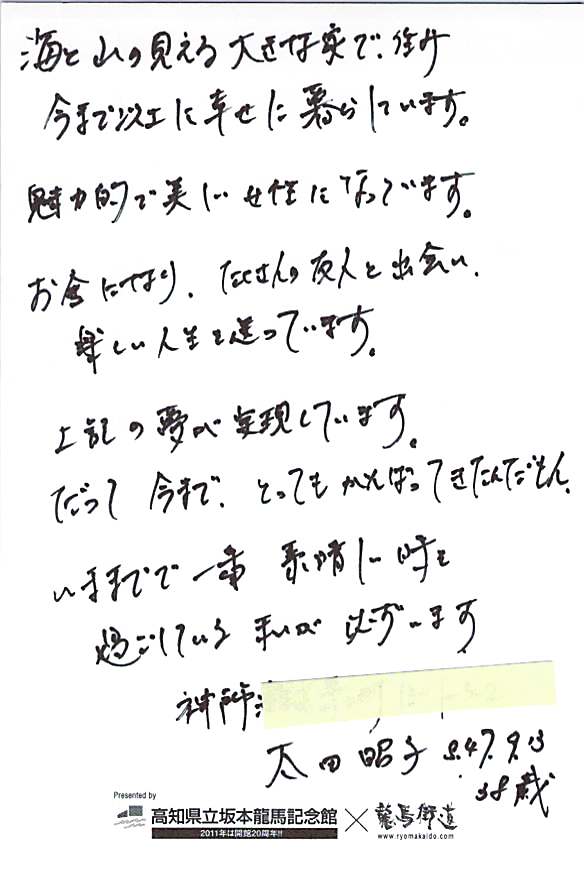 海と山の見える大きな家で、
今まで以上に幸せに暮らしています。
魅力的で美しい女性になっています。
お金にやり、たくさんの友人と出会い、
楽しい人生を送っています。
上記の夢が実現しています。
だって今まで、とってもがんばってきたんだもん、
いままでで一番素晴しい時を
過ごしている私が必ずいます
神
太田昭子 S.47.9.13
38歳
Presented by
高知県立坂本龍馬記念館 × 龍馬街道
2011年は開館20周年!!
www.ryomakaido.com